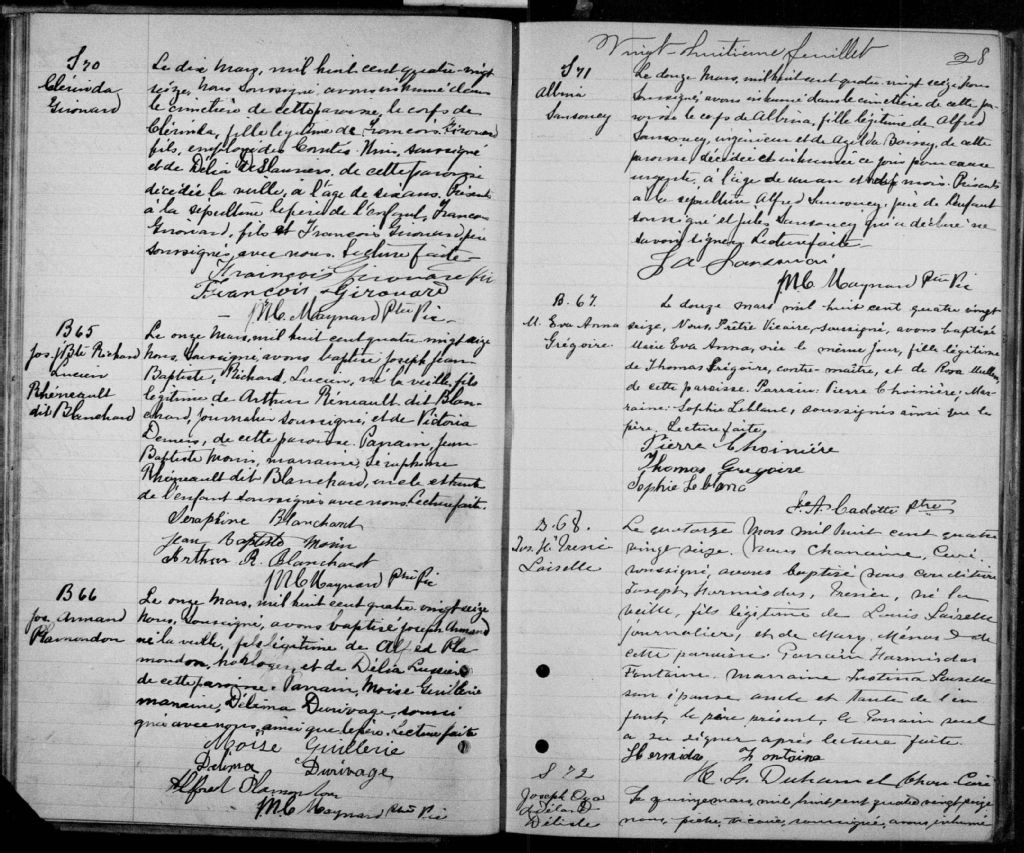 S 70
Clérinda
Girouard
Le dix Mars, mil huit cent quatre-vingt
seize, Nous soussigné, avons inhumé dans
le cimetière de cette paroisse, le corps de
Clérinda, fille légitime de François Girouard
fils, employé des soussigné
et de Délia Deslauriers, de cette paroisse
décédée la veille, à l'âge de six ans. Présents
à la sépulture le père de l'enfant, François
Girouard, fils et François Girouard, père
soussignés, avec nous. Lecture faite-
François Girouard
François Girouard
MC Maynard Ptre Vic
B 65
Jos. J Bte Richard
Lucien
Rhéneault
dit Blanchard
Le onze Mars, mil huit cent quatre vingt seize
Nous, soussigné, avons baptisé Joseph Jean
Baptiste, Richard, Lucien, né la veille, fils
légitime de Arthur Réneault dit Blan-
chard, journalier soussigné, et de Victoria
Demers, de cette paroisse. Parrain, Jean
Baptiste Morin, marraine, Séraphine
Rhéneault dit Blanchard, oncle et tante
de l'enfant soussignés avec nous. Lecture faite.
Séraphine Blanchard
Jean Baptiste Morin
Arthur R. Blanchard
MC Maynard Ptre Vic
B 66
Jos. Armand
Plamondon
Le onze Mars, mil huit cent quatre vingt seize
Nous, soussigné, avons baptisé Joseph Armand
né la veille, fils légitime de Alfred Pla-
mondon, horloger, et de Délia Lussier
de cette paroisse. Parrain, Moïse Guillerie
marraine, Délima Durivage, soussi
gnés avec nous, ainsi que le père. Lecture faite
Moïse Guillerie
Délima Durivage
Alfred Plamondon
MC Maynard Ptre Vic
Vingt-huitième feuillet
28
S 71
Albina
Sansoucy
Le douze Mars, mil huit cent quatre vingt seize, Nous
soussigné avons inhumé dans le cimetière de cette pa-
roisse le corps de Albina, fille légitime de Alfred
Sansoucy, ingénieur et de Azilda de cette
paroisse décédée et inhumée ce jour pour cause
urgente, à l'âge de un an et mois. Présents
à la sépulture Alfred Sansoucy, père de l'enfant
soussigné et Jules Sansoucy qui a déclaré ne
savoir signer. Lecture faite
MC Maynard Ptre Vic
B. 67
M. Eva Anna
Grégoire
Le douze mars mil huit cent quatre vingt
seize, Nous, Prêtre Vicaire, soussigné, avons baptisé
Marie Eva Anna, née le même jour, fille légitime
de Thomas Grégoire, contre-maître, et de Rosa
de cette paroisse. Parrain: Pierre Choinière; Mar-
raine: Sophie Leblanc, soussignés ainsi que le
père. Lecture faite,
Pierre Choinière
Thomas Grégoire
Sophie Leblanc
J. A. Cadotte Ptre
B. 68.
Jos. H. Trenée
Loiselle
Le quatorze Mars mil huit cent quatre
vingt seize. Nous Chanoine, Curé
soussigné, avons baptisé sous condition
Joseph, Hormisdas, né la
veille, fils légitime de Louis Loiselle
journalier, et de Mary, Ménard de
cette paroisse. Parrain Hormisdas
Fontaine. Marraine Loiselle
son épouse oncle et tante de l'en
fant, le père présent, le Parrain seul
a su signer après lecture faite.
Hermida Fontaine
H. L. Duhamel Chan. Curé
S 72
Joseph
Délisle
Le quinze mars, mil huit cent quatre vingt seize
nous, prêtre, vicaire, soussigné, avons inhumé